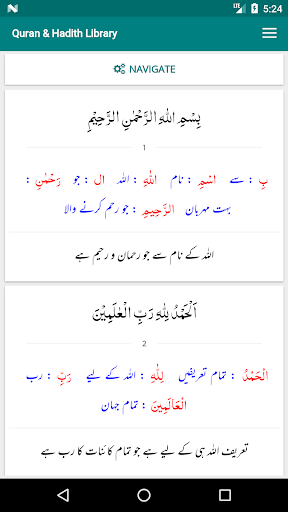 5:24
Quran & Hadith Library
NAVIGATE
بِسْمِ اللهِ الرَّحْمٰنِ الرَّحِيْمِ
1
بِ : سے اسْمِ : نام اللّٰهِ : الله ال : جو رَحْمٰنِ :
بہت مہربان الرَّحِيمِ : جو رحم کرنے والا
اللہ کے نام سے جو رحمان و رحیم ہے
اَلْحَمْدُ لِلّٰهِ رَبِّ الْعٰلَمِيْنَ
2
الْحَمْدُ : تمام تعریفیں لِلّٰهِ : اللہ کے لیے رَبِّ : رب
الْعَالَمِينَ : تمام جہان
تعریف اللہ ہی کے لیے ہے جو تمام کائنات کا رب ہے